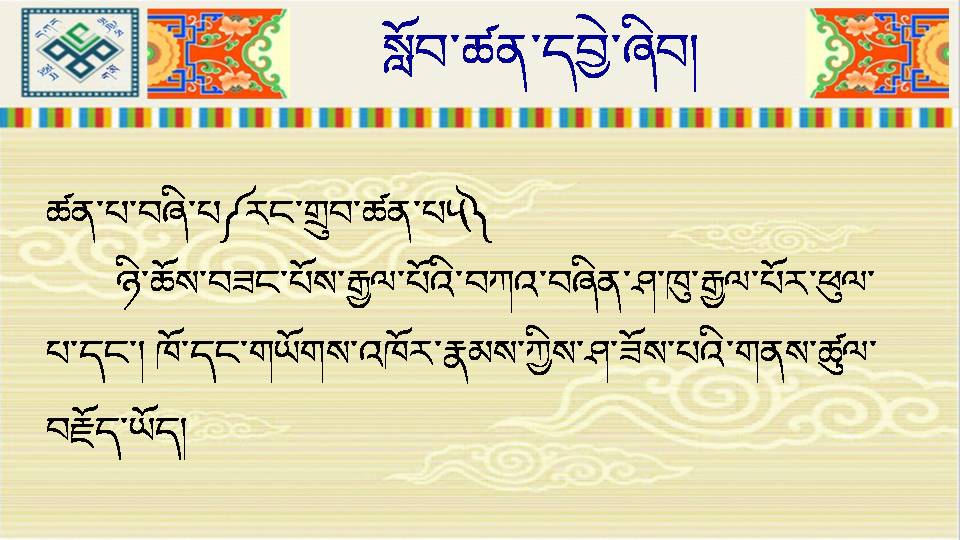 སློབ་ཚན་དབྱེ་ཞིབ།
ཚན་པ་བཞི་པ༼རང་གྲུབ་ཚན་པ༥༽
ཉི་ཆོས་བཟང་པོས་རྒྱལ་པོའི་བཀའ་བཞིན་ཤ་ཁུ་རྒྱལ་པོར་ཕུལ་
པ་དང་། ཁོ་དང་གཡོགས་འཁོར་རྣམས་ཀྱིས་ཤ་ཟོས་པའི་གནས་ཚུལ་
བརྗོད་ཡོད།